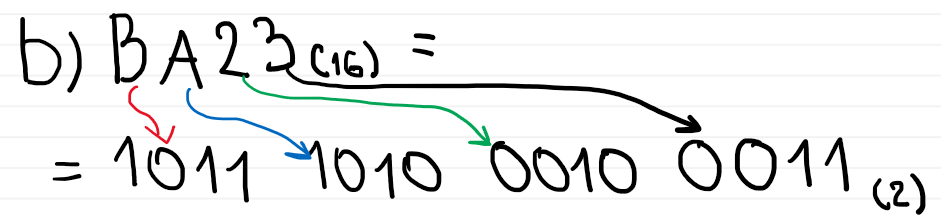 b) BA23(16) =
= 1011 1010 0010 0011 (2)